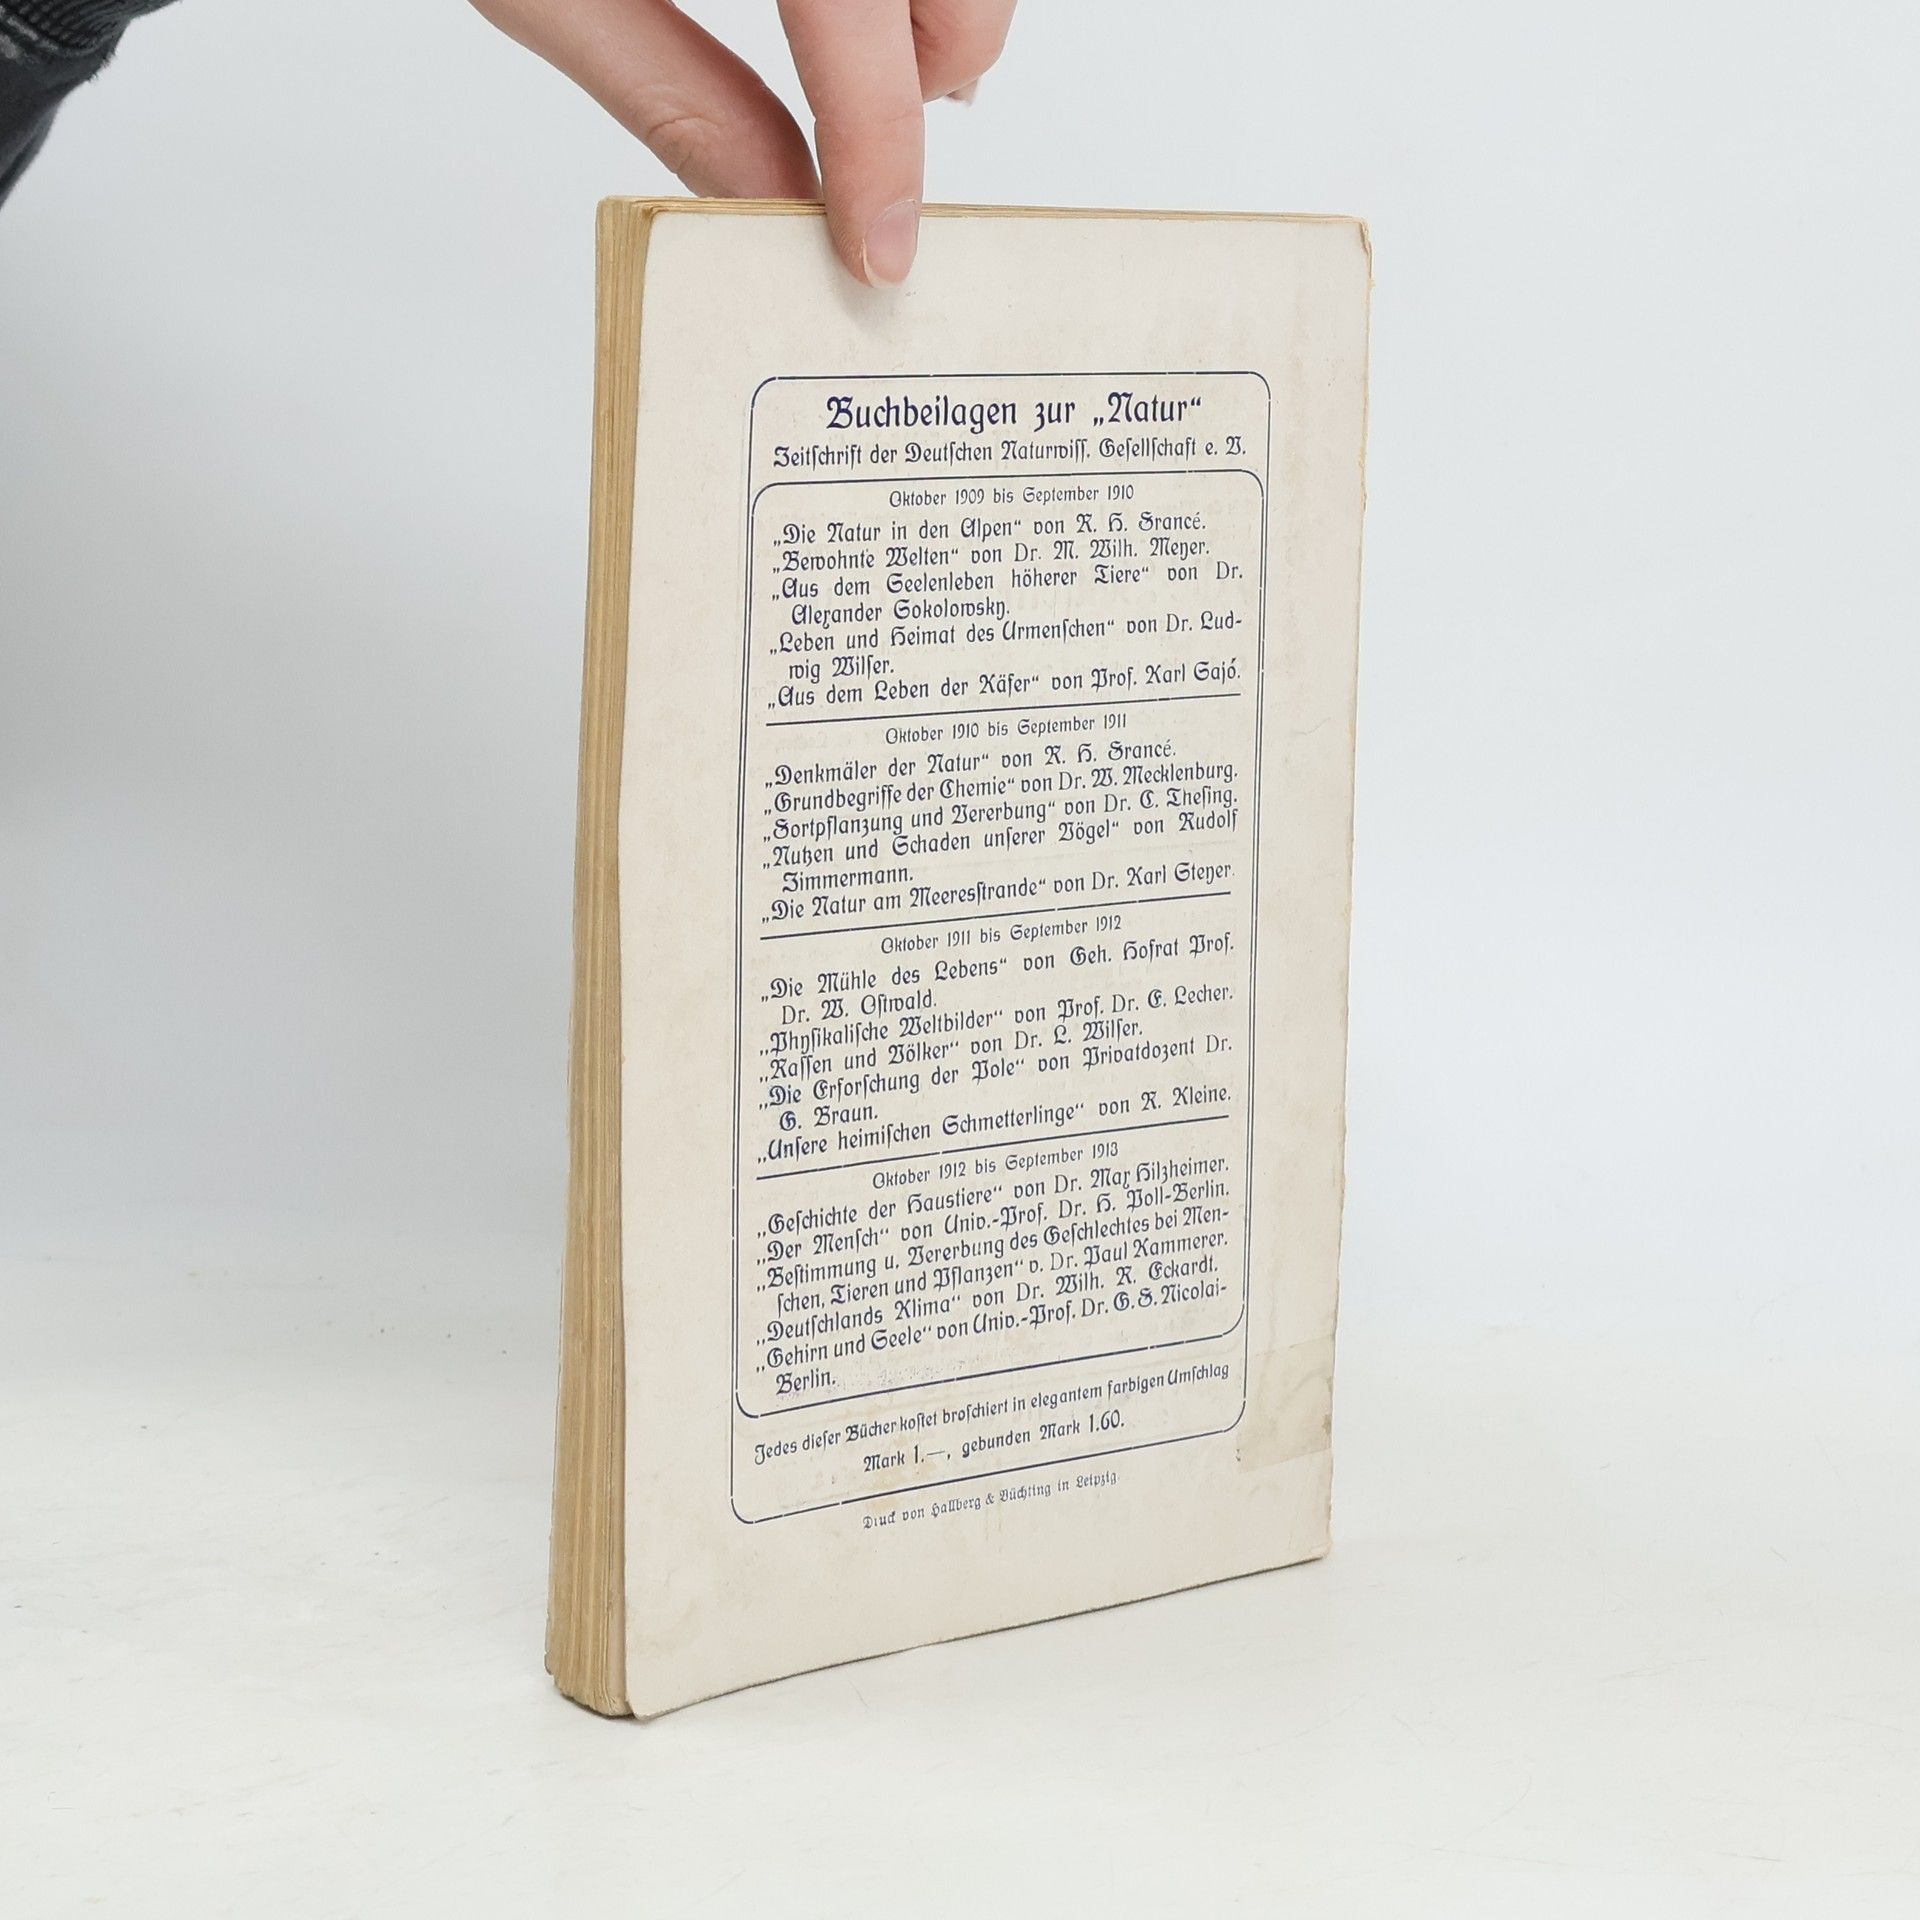 Buchbeilagen zur „Natur“
Zeitſchrift der Deutſchen Naturwiſſ. Geſellſchaft e. V.
Oktober 1909 bis September 1910
„Die Natur in den Alpen“ von R. H. Francé.
„Bewohnte Welten“ von Dr. M. Wilh. Meyer.
„Aus dem Seelenleben höherer Tiere“ von Dr.
Alexander Sokolowsky.
„Leben und Heimat des Urmenſchen“ von Dr. Lud-
wig Wilſer.
„Aus dem Leben der Käfer“ von Prof. Karl Sajó.
Oktober 1910 bis September 1911
„Denkmäler der Natur“ von R. H. Francé.
„Grundbegriffe der Chemie“ von Dr. W. Mecklenburg.
„Fortpflanzung und Vererbung“ von Dr. C. Theſing.
„Nutzen und Schaden unſerer Vögel“ von Rudolf
Zimmermann.
„Die Natur am Meeresſtrande“ von Dr. Karl Steyer.
Oktober 1911 bis September 1912
„Die Mühle des Lebens“ von Geh. Hofrat Prof.
Dr. W. Oſtwald.
„Phyſikaliſche Weltbilder“ von Prof. Dr. E. Lecher.
„Raſſen und Völker“ von Dr. L. Wilſer.
„Die Erforſchung der Pole“ von Privatdozent Dr.
G. Braun.
„Unſere heimiſchen Schmetterlinge“ von R. Kleine.
Oktober 1912 bis September 1913
„Geſchichte der Haustiere“ von Dr. Max Hilzheimer.
„Der Menſch“ von Univ.-Prof. Dr. H. Poll-Berlin.
„Beſtimmung u. Vererbung des Geſchlechtes bei Men-
ſchen, Tieren und Pflanzen“ v. Dr. Paul Kammerer.
„Deutſchlands Klima“ von Dr. Wilh. R. Eckardt.
„Gehirn und Seele“ von Univ.-Prof. Dr. G. F. Nicolai-
Berlin.
Jedes dieſer Bücher koſtet broſchiert in elegantem farbigen Umſchlag
Mark 1.—, gebunden Mark 1.60.
Druck von Hallberg & Büchting in Leipzig.